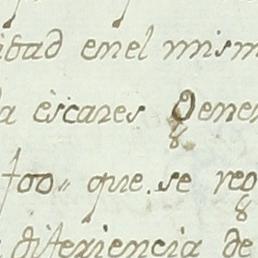 idad en el mism
a escases Gener
too que se reg
diferiencia de